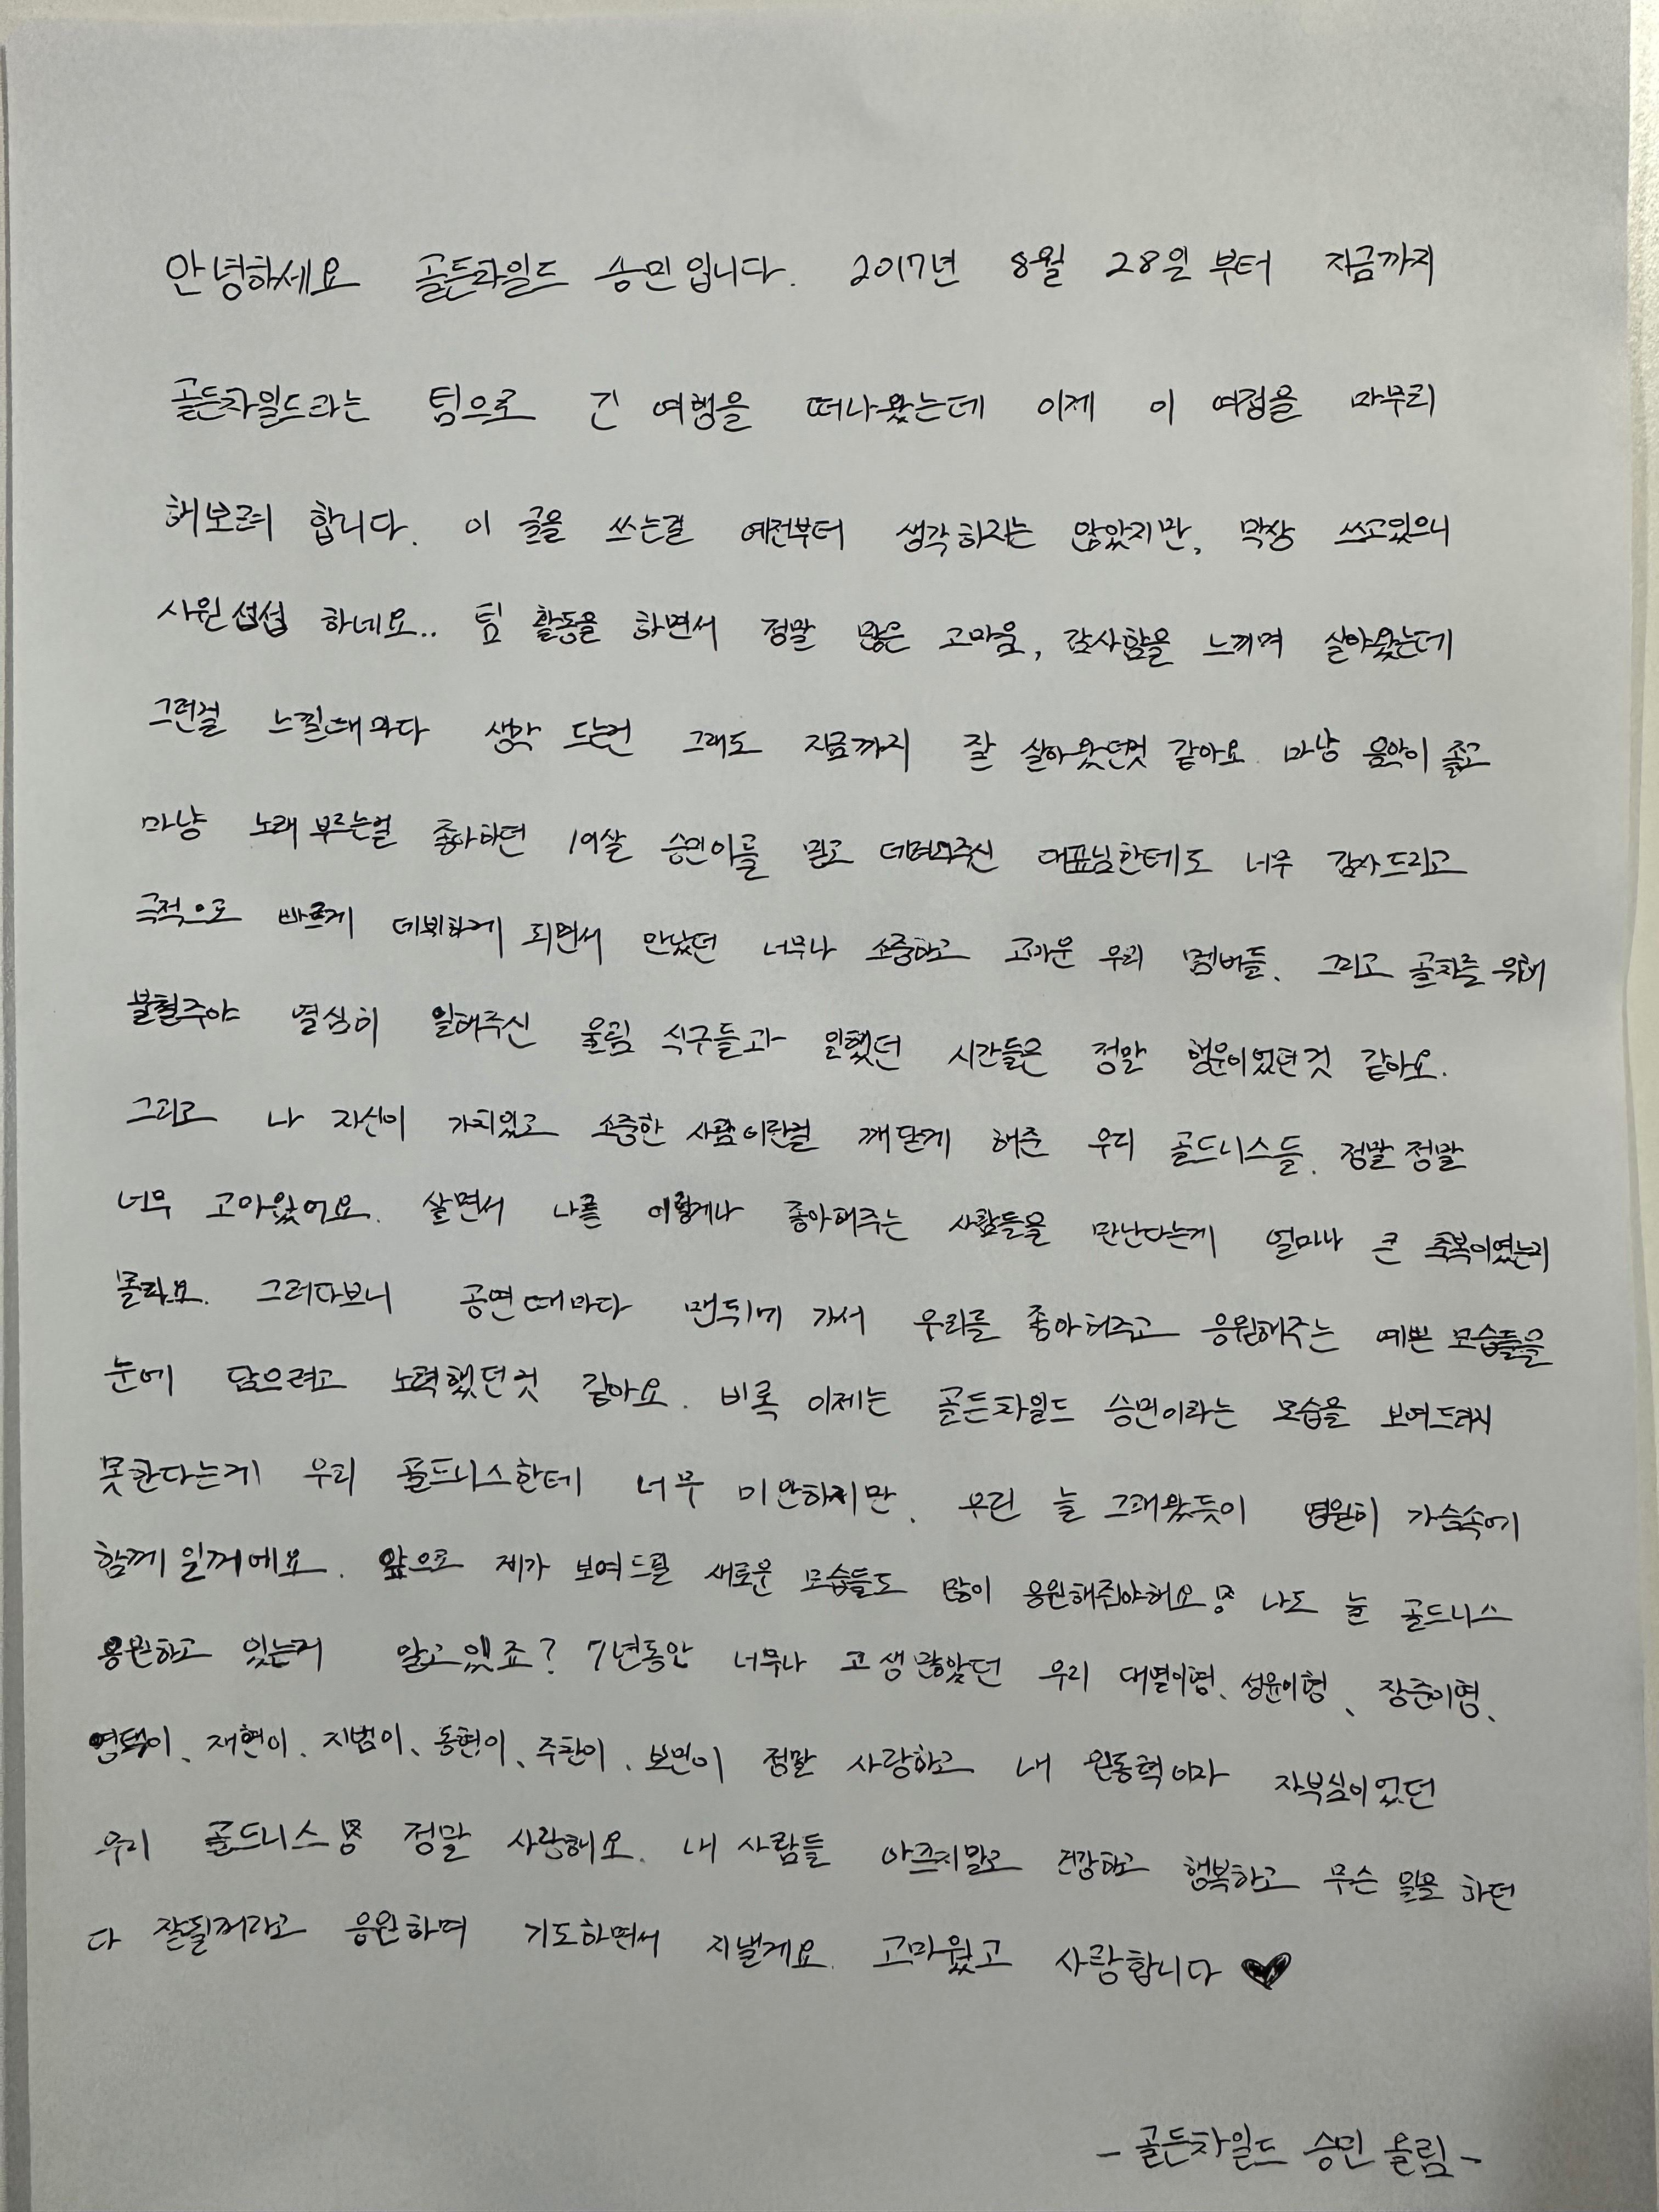 안녕하세요 골든차일드 승민입니다. 2017년 8월 28일 부터 지금까지
골든차일드라는 팀으로 긴 여행을 떠나왔는데 이제 이 여정을 마무리
해보려 합니다. 이 글을 쓰는걸 예전부터 생각하지는 않았지만, 막상 쓰고있으니
시원섭섭 하네요.. 팀 활동을 하면서 정말 많은 고마움, 감사함을 느끼며 살아왔는데
그런걸 느낄때마다 생각 드는건 그래도 지금까지 잘 살아왔던것 같아요. 마냥 음악이 좋고
마냥 노래 부르는걸 좋아하던 19살 승민이를 믿고 데려와주신 대표님한테도 너무 감사드리고
극적으로 빠르게 데뷔하게 되면서 만났던 너무나 소중하고 고마운 우리 멤버들. 그리고 골차를 위해
불철주야 열심히 일해주신 울림 식구들과 일했던 시간들은 정말 행운이었던것 같아요.
그리고 나 자신이 가치있고 소중한 사람이란걸 깨닫게 해준 우리 골드니스들. 정말 정말
너무 고마웠어요. 살면서 나를 이렇게나 좋아해주는 사람들을 만난다는게 얼마나 큰 축복이였는지
몰라요. 그러다보니 공연때마다 맨뒤에 가서 우리를 좋아해주고 응원해주는 예쁜 모습들을
눈에 담으려고 노력했던것 같아요. 비록 이제는 골든차일드 승민이라는 모습을 보여드리지
못한다는게 우리 골드니스한테 너무 미안하지만, 우린 늘 그래왔듯이 영원히 가슴속에
함께 일꺼에요. 앞으로 제가 보여드릴 새로운 모습들도 많이 응원해줘야해요 나도 늘 골드니스
응원하고 있는거 알고있죠? 7년동안 너무나 고생많았던 우리 대열이형、성윤이형、장준이형、
영택이、재현이、지범이、동현이、주찬이、보민이 정말 사랑하고 내 원동력이자 자부심이었던
우리 골드니스 정말 사랑해요. 내 사람들 아프지말고 건강하고 행복하고 무슨 일을 하던
다 잘될꺼라고 응원하며 기도하면서 지낼게요. 고마웠고 사랑합니다 ♥
- 골든차일드 승민 올림 -